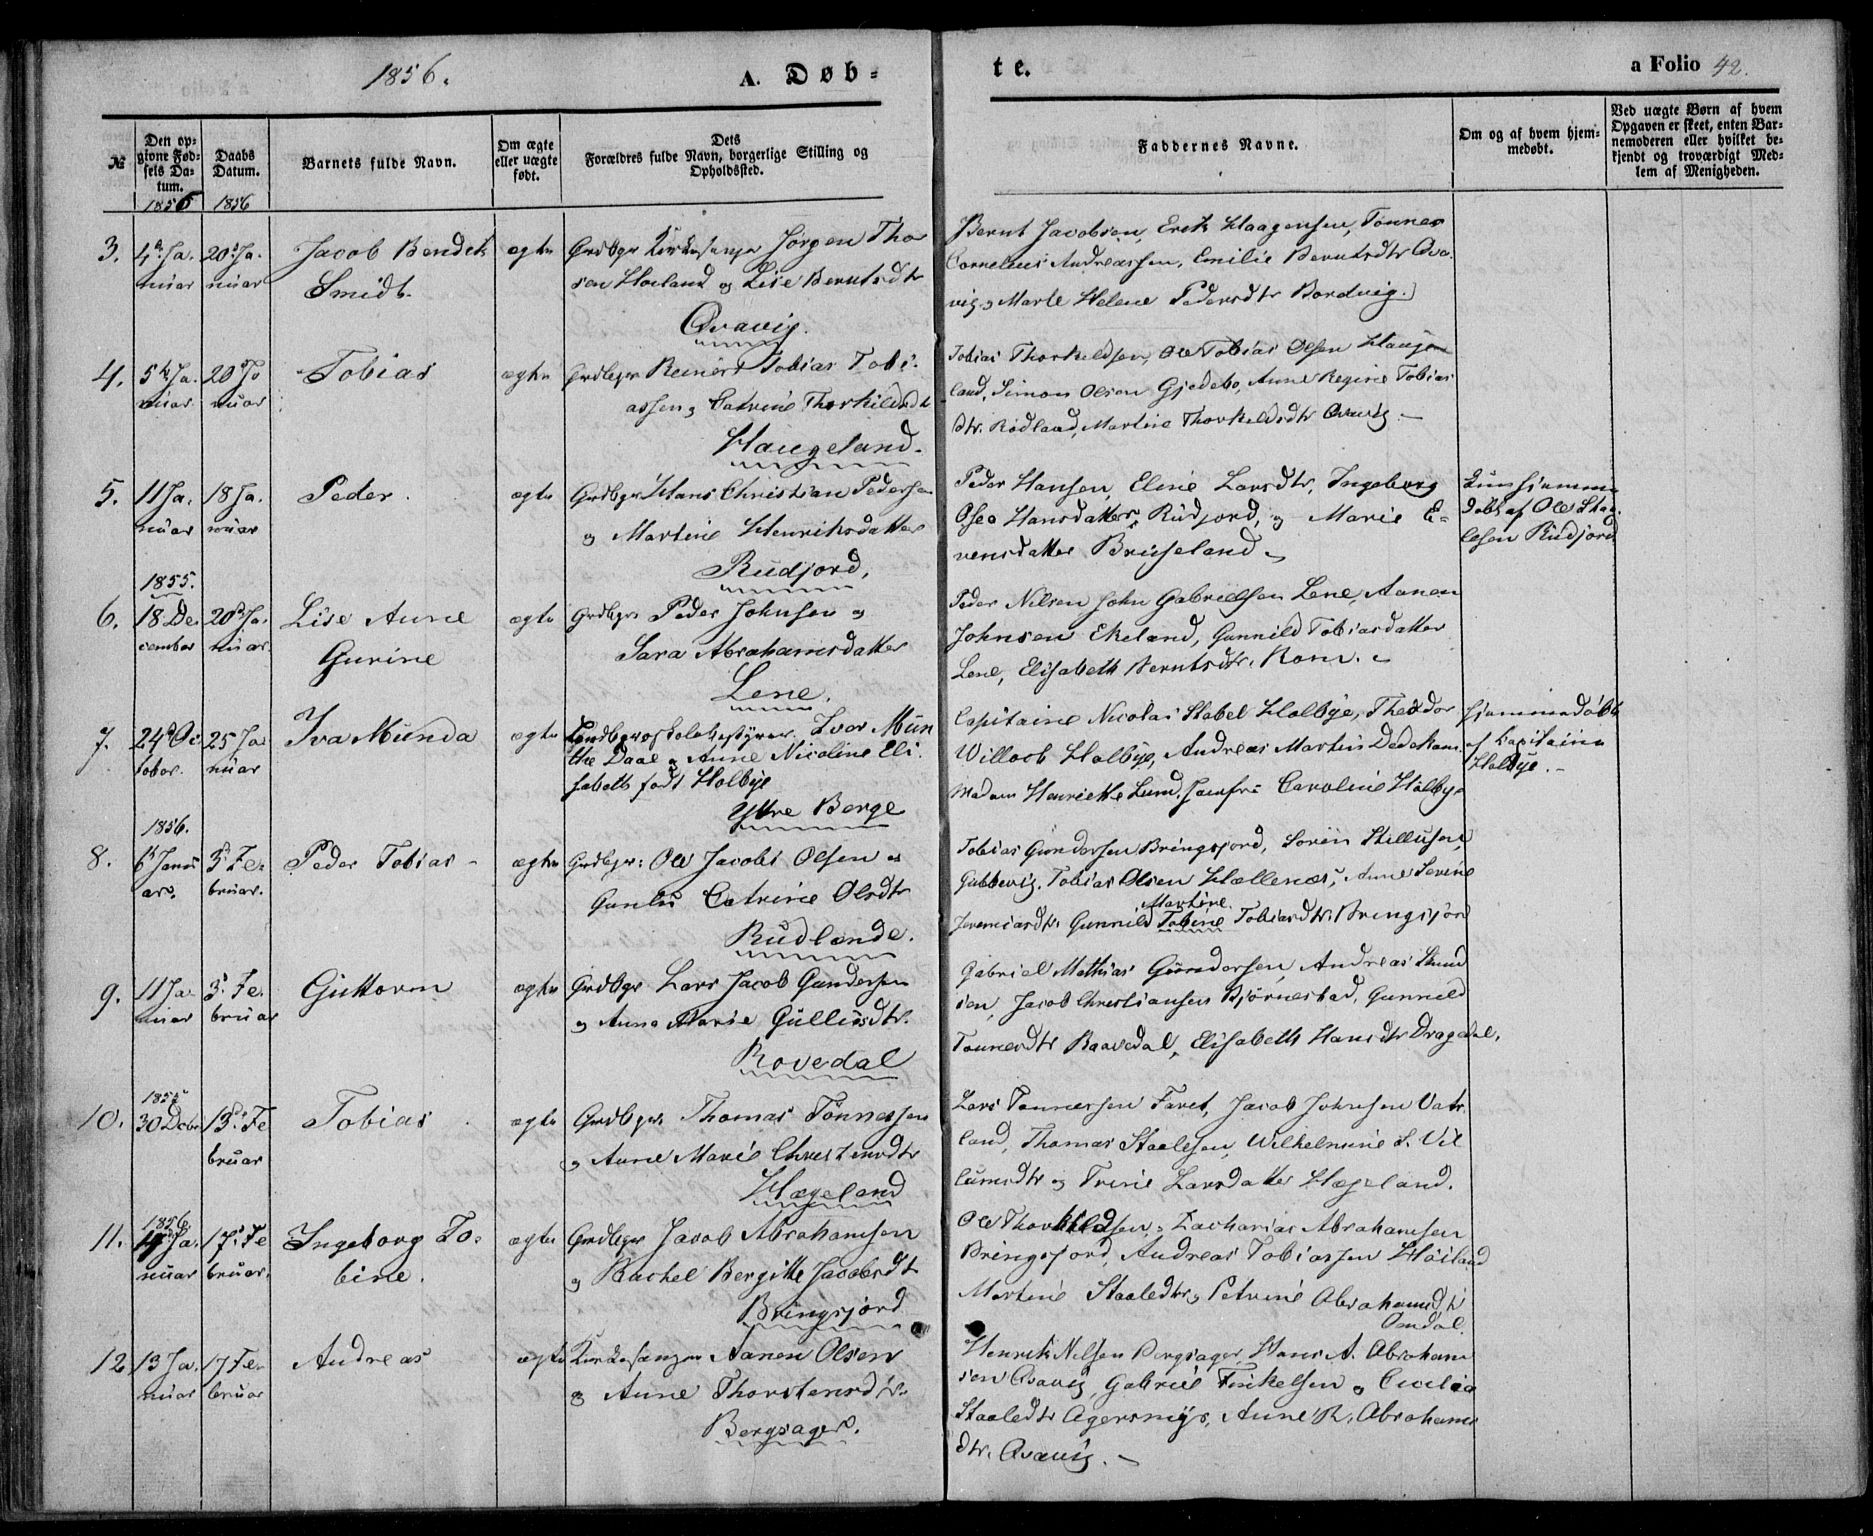 1856.
A. Døb-
te.
a Folio 42.
№
Den op-
givne Fød-
sels Da-
tum.
Daabs
Datum.
Barnets fulde Navn.
Om ægte
eller uægte
født.
Dets
Forældres fulde Navn, borgerlige Stilling og
Opholdssted.
Faddernes Navne.
Om og af hvem hjem-
medøbt.
Ved uægte Børn af hvem
Opgaven er skeet, enten Bar-
nemoderen eller hvilket be-
kjendt og troværdigt Med-
lem af Menigheden.
1856
1856
3.
4de Ja-
nuar
20de Ja-
nuar
Jacob Bendek
Smidt.
ægte
Grdbgr Kirkesanger Jørgen Tho
sen Høiland og Lise Berntsdtr
Qvavig.
Bernt Jacobsen, Erik Haagensen, Tønnes
Cornelius Andreassen, Emilie Berntsdtr Qva-
vig og Marte Helene Pedersdtr Bordvig.
4.
5te Ja-
nuar
20de Ja
nuar
Tobias
ægte
Grdbgr Reinert Tobias Tobi-
assen og Catrine Thorkildsdt
Haugeland.
Tobias Thorkeldsen, Ole Tobias Olsen Hauge
land, Simon Olsen Gjedebo, Anne Regine Tobias
dtr. Rødland, Martine Thorkeldsdtr Qvavig. —
5.
11 Ja-
nuar
18 Ja-
nuar
Peder.
ægte
Grdbgr Hans Christian Pedersen
og Martine Henriksdatter
Rudjord,
Peder Hansen, Eline Larsdtr, Ingeborg
Osea Hansdatter, Rudjord, og Marie E-
vensdatter Bruseland.
hjemme
døbt af Ole Staa-
lesen Rudjord
1855.
6.
18 De-
cember
20de Ja-
nuar
Lise Anne
Gurine
ægte
Grdbgr Peder Johnsen og
Sara Abrahamsdatter
Lene.
Peder Nilsen John Gabrielsen Lene, Aanen
Johnsen Ekeland, Gunnild Tobiasdatter
Lene, Elisabeth Berntsdtr. Rom.
7.
24de Oc
tober.
25 Ja
nuar
Iva Munda
ægte
Landbrugsskolebestyrer Ivar Mun
the Daae og Anne Nicoline Eli-
sabeth født Holbye
Yttre Berge
Capitaine Nicolai Stabel Holbye, Theodor
Willoch Holbye, Andreas Martin Dedekam
Madam Henriette Lund, Jomfru Caroline Holbye
hjemmedøbt
af Capitaine
Holbye. —
1856.
8.
6te Janu
ar.
3de Fe-
bruar.
Peder Tobias
ægte
Grdbgr: Ole Jacobi Olsen og
Gunlu Catrine Olsdtr
Rudlænde.
Tobias Gundersen Bringsjord, Søren Stillusen
Gubbevig. Tobias Olsen Hællenes, Anne Serine
Martine.
Jeremiasdtr. Gunnild Tobine Tobiasdtr. Bringsjord
9.
11 Ja-
nuar
3de Fe-
bruar
Guttorm
ægte
Grdbgr Lars Jacob Gundersen
og Anna Marie Gulliksdtr.
Rovedal
Gabriel Mathias Gundersen, Andreas
sen, Jacob Christiansen Bjørnestad, Gunnild
Tønnesdtr Raavedal, Elisabeth Hansdtr Dragedal.
1855
10.
30 Decbr
13de Fe
bruar
Tobias
ægte
Grdbgr. Thomas Tønnessen
og Anne Marie Christensdtr
Hægeland
Lars Tønnessen Faret, Jacob Johnsen Vats
land, Thomas Staalesen, Wilhelmine S. Vil
lumsdtr og Trine Larsdatter Hægeland.
1856
11.
Ja-
nuar
17de Fe
bruar.
Ingeborg To-
bine.
ægte
Grdbgr Jacob Abrahamsen
og Rachel Bergitte Jacobsdt
Bringsjord
Ole Thorkildsen, Zacharias Abrahamsen
Bringsjord, Andreas Tobiassen Høiland
Martine Staaledtr, Petrine Abrahamsdtr
Omdal.
12
13 Ja-
nuar
17 Fe-
bruar
Andreas
ægte
Kirkesanger Aanen Olsen
og Anne Thorstensdtr.
Bergsager.
Henrik Nilsen Bergsager, Hans A. Abraham
sen Qvavig, Gabriel Terkelsen og Cecilia
Staaledtr Agersmyr, Anne R. Abrahams
dtr. Qvavig. —